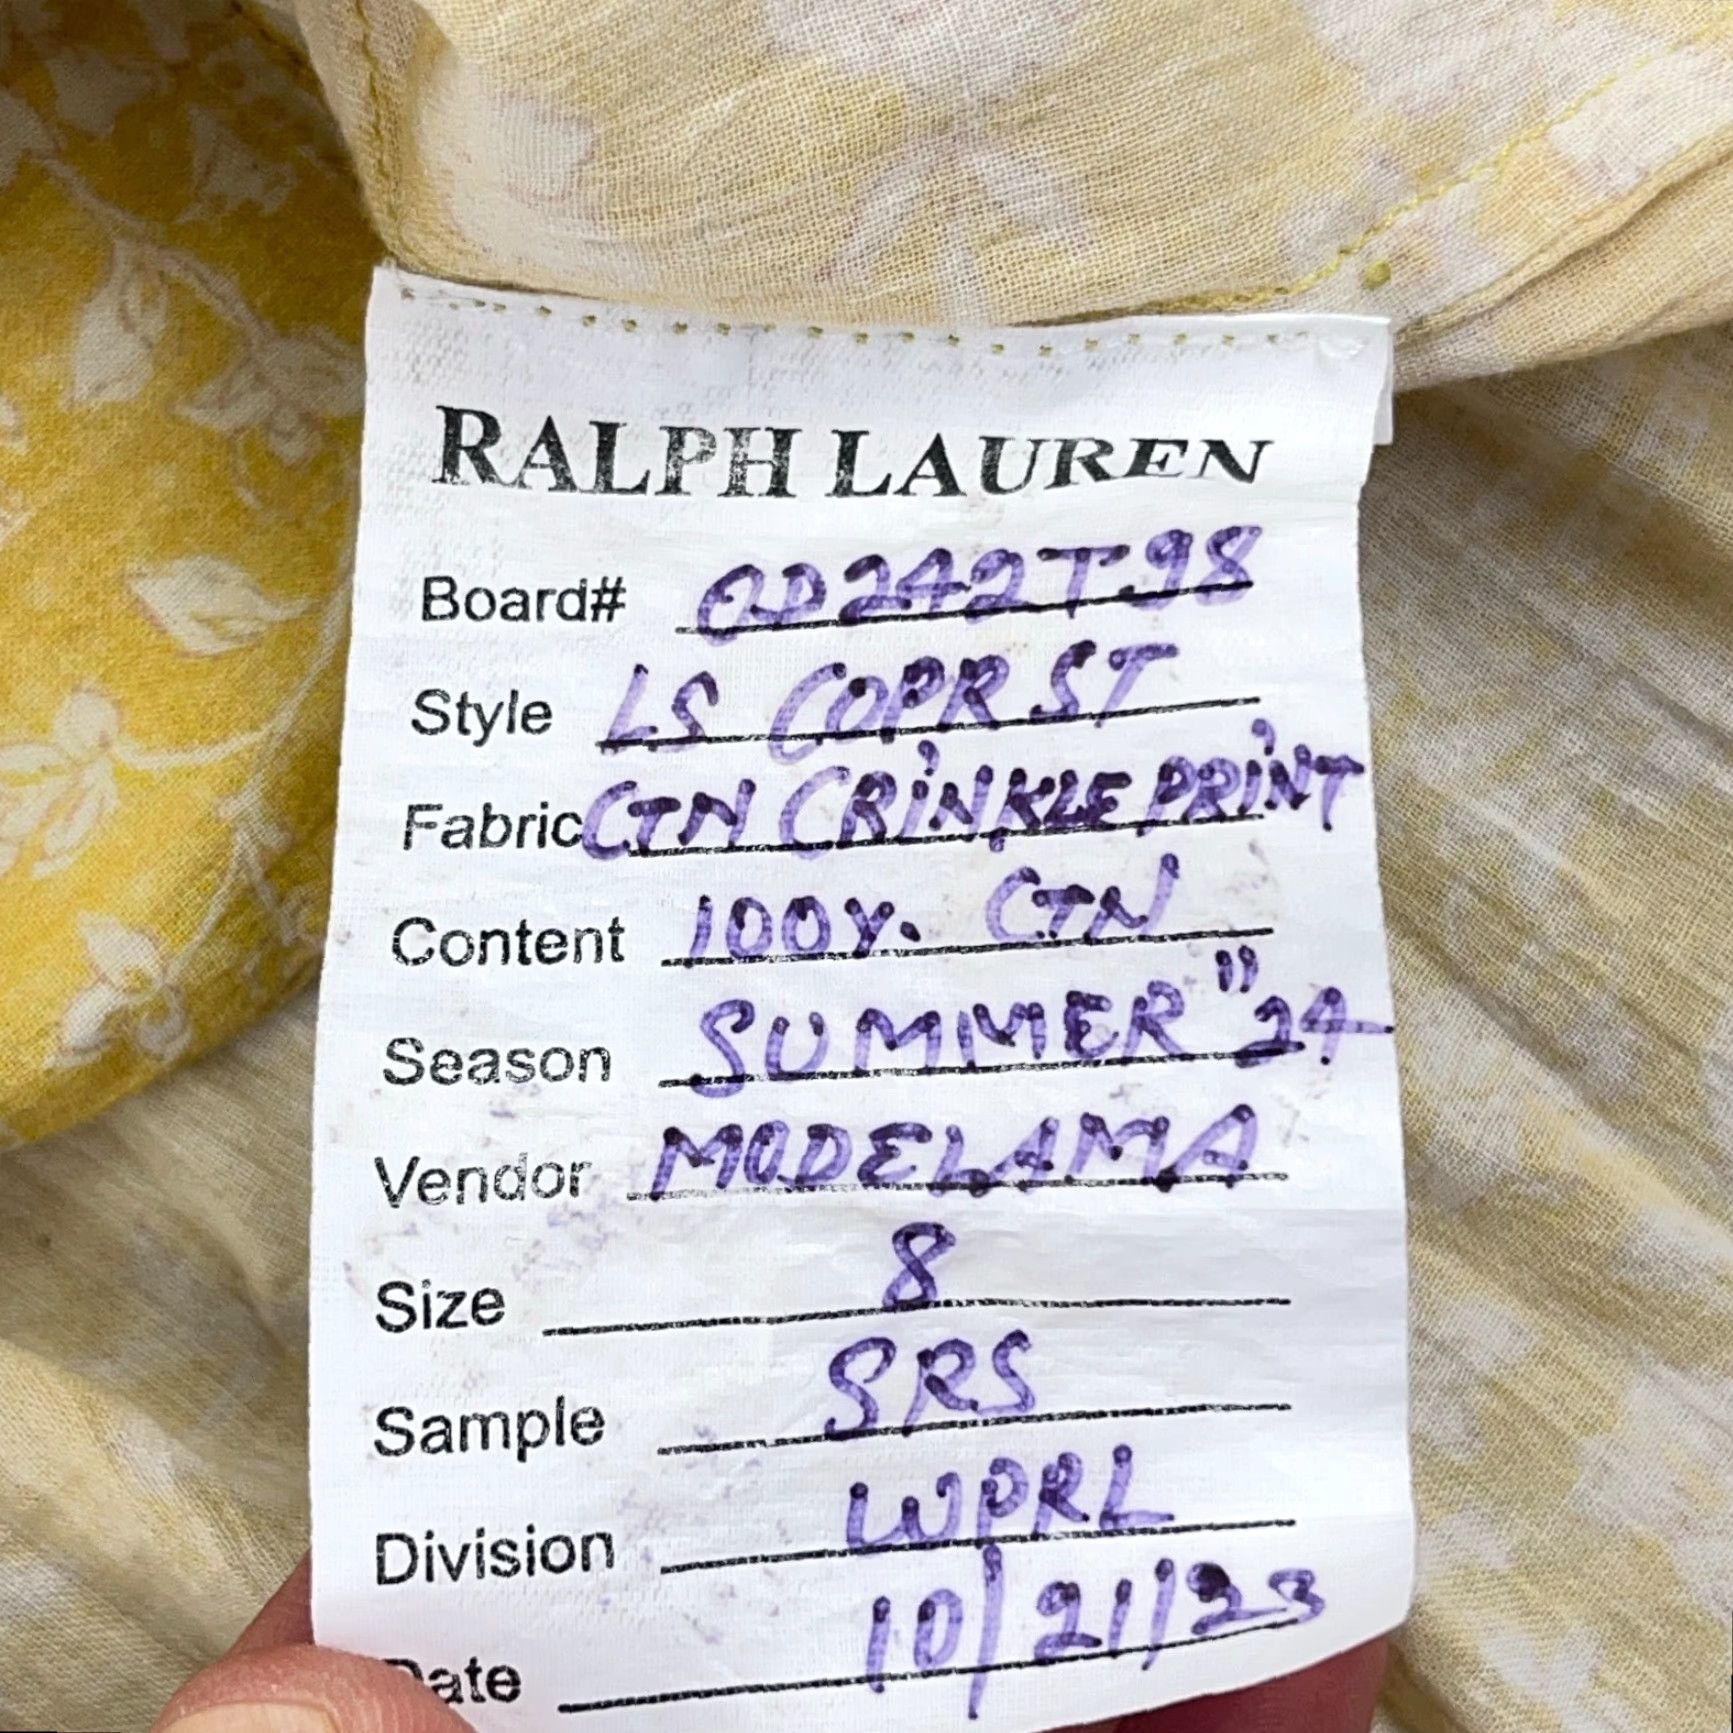 RALPH LAUREN
Board# OD242T98
Style LS COPR ST
Fabric CTN CRINKLE PRINT
Content 100%. CTN
Season SUMMER "24
Vendor MODELAMA
Size 8
Sample SRS
Division WPRL
Date 10/21/23